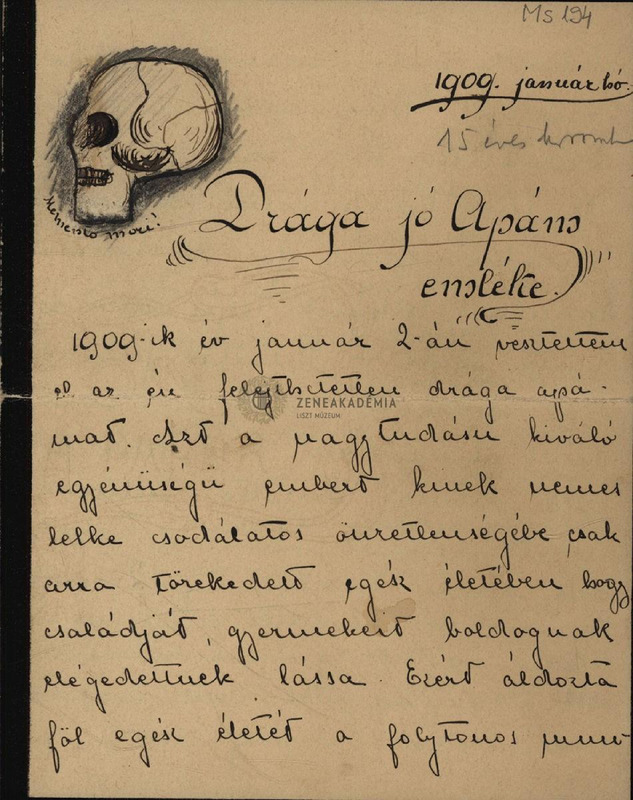 Ms 194
1909. januárhó.
15 éves koromb
Memento mori!
Drága jó Apám
emléke.
1909-ik év január 2-án vesztettem
el az én felejthetetlen drága apá-
mat. Azt a nagytudásu kiváló
egyéniségü embert kinek nemes
lelke csodálatos önzetlenségébe csak
arra törekedett egész életében hogy
családját, gyermekeit boldognak
elégedettnek lássa. Ezért áldozta
föl egész életét a folytonos mun
ZENEAKADÉMIA
LISZT MÚZEUM